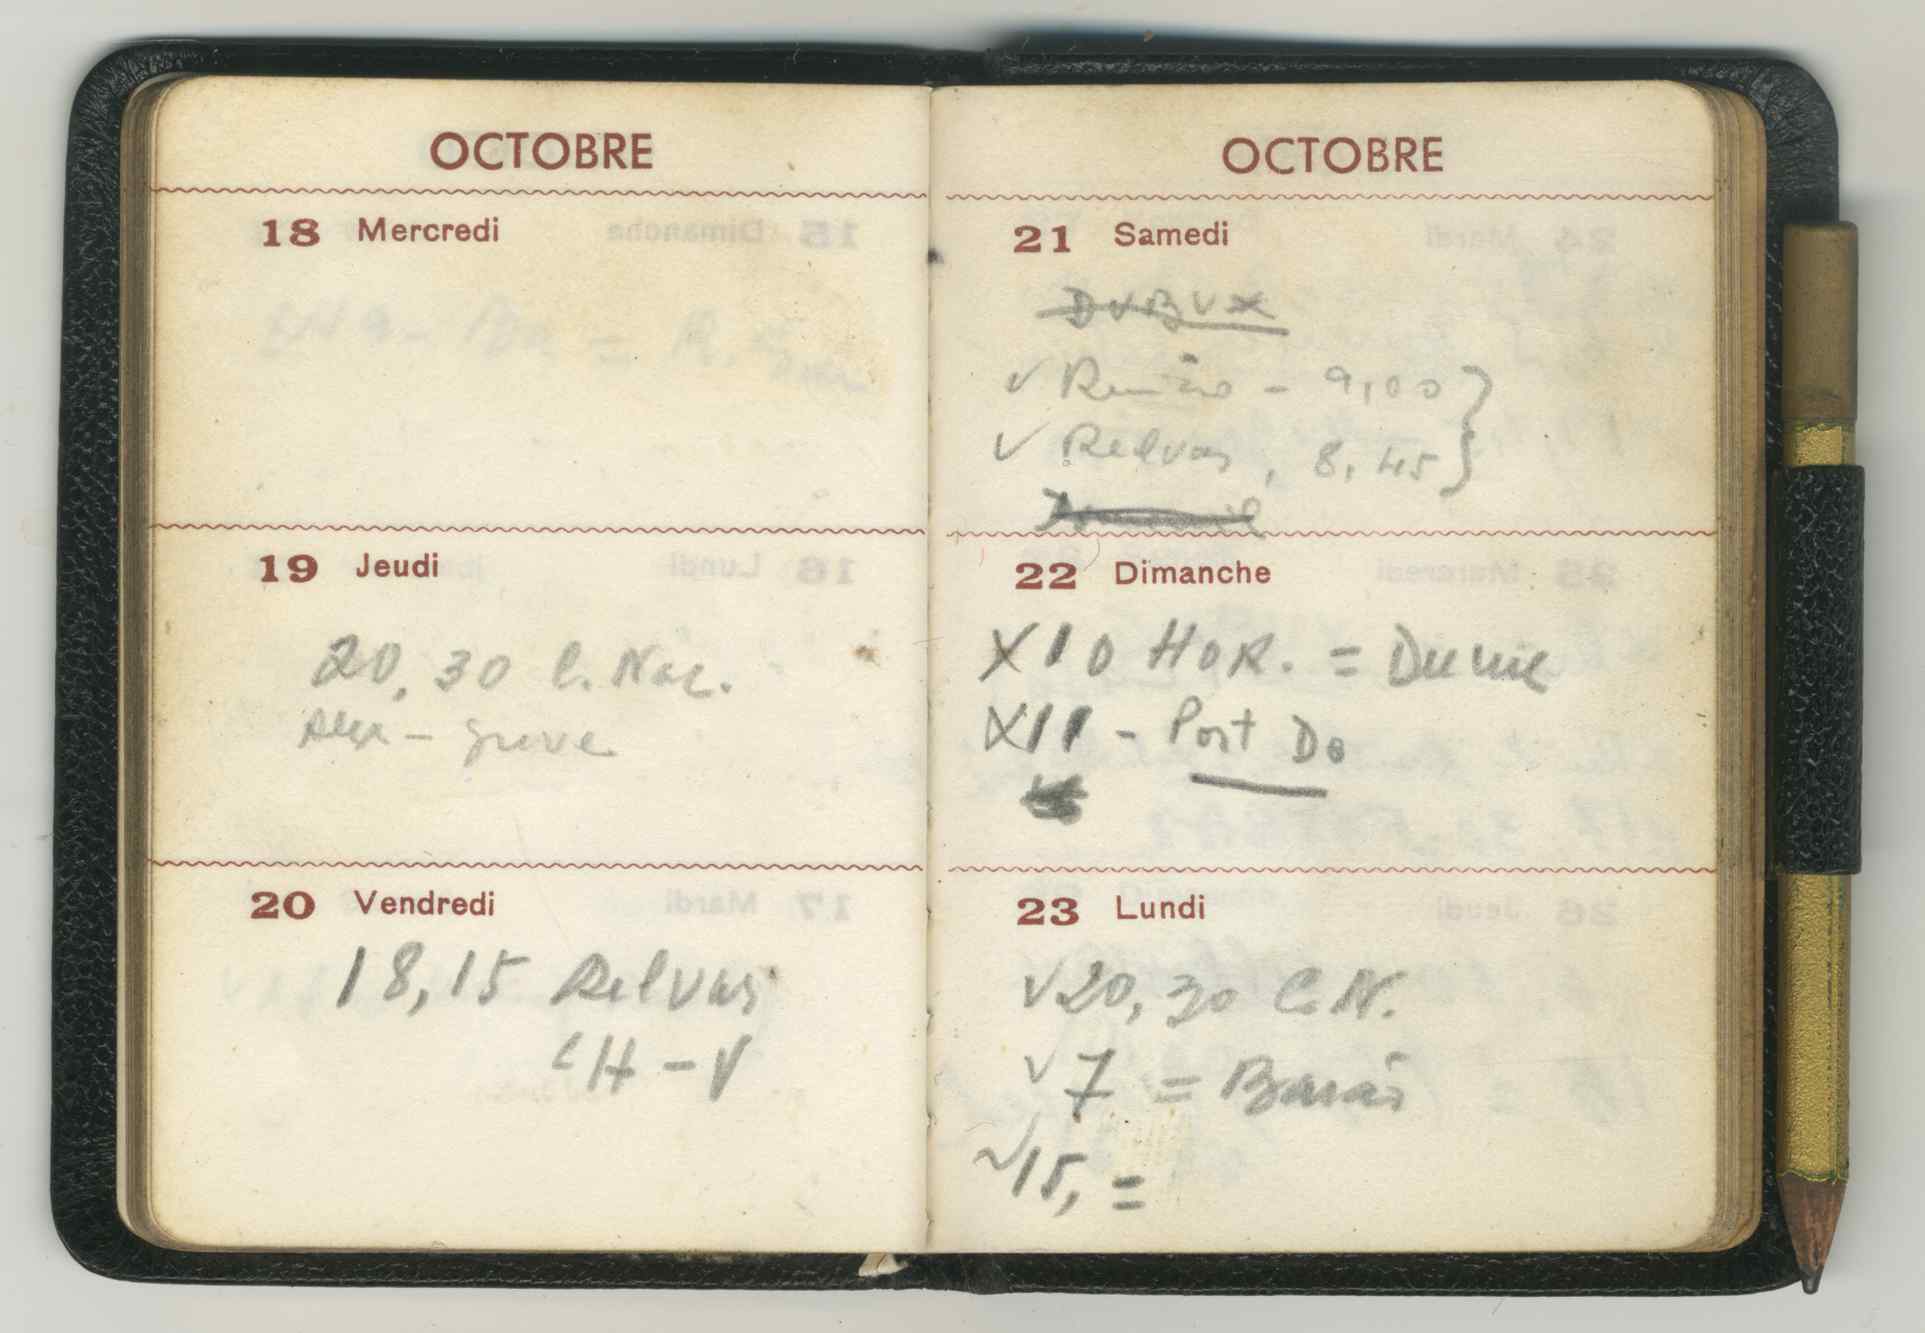 OCTOBRE
18 Mercredi
19 Jeudi
20,30 C. Nac.
Alex - greve
20 Vendredi
18,15 Relvas
CH - V
OCTOBRE
21 Samedi
DuBux
✓ - 9,00 }
✓ Relvas, 8,45 }
22 Dimanche
X 10 HOR. =
X 11 - Port Do
23 Lundi
✓ 20,30 C.N.
✓ 7 =
✓ 15, =